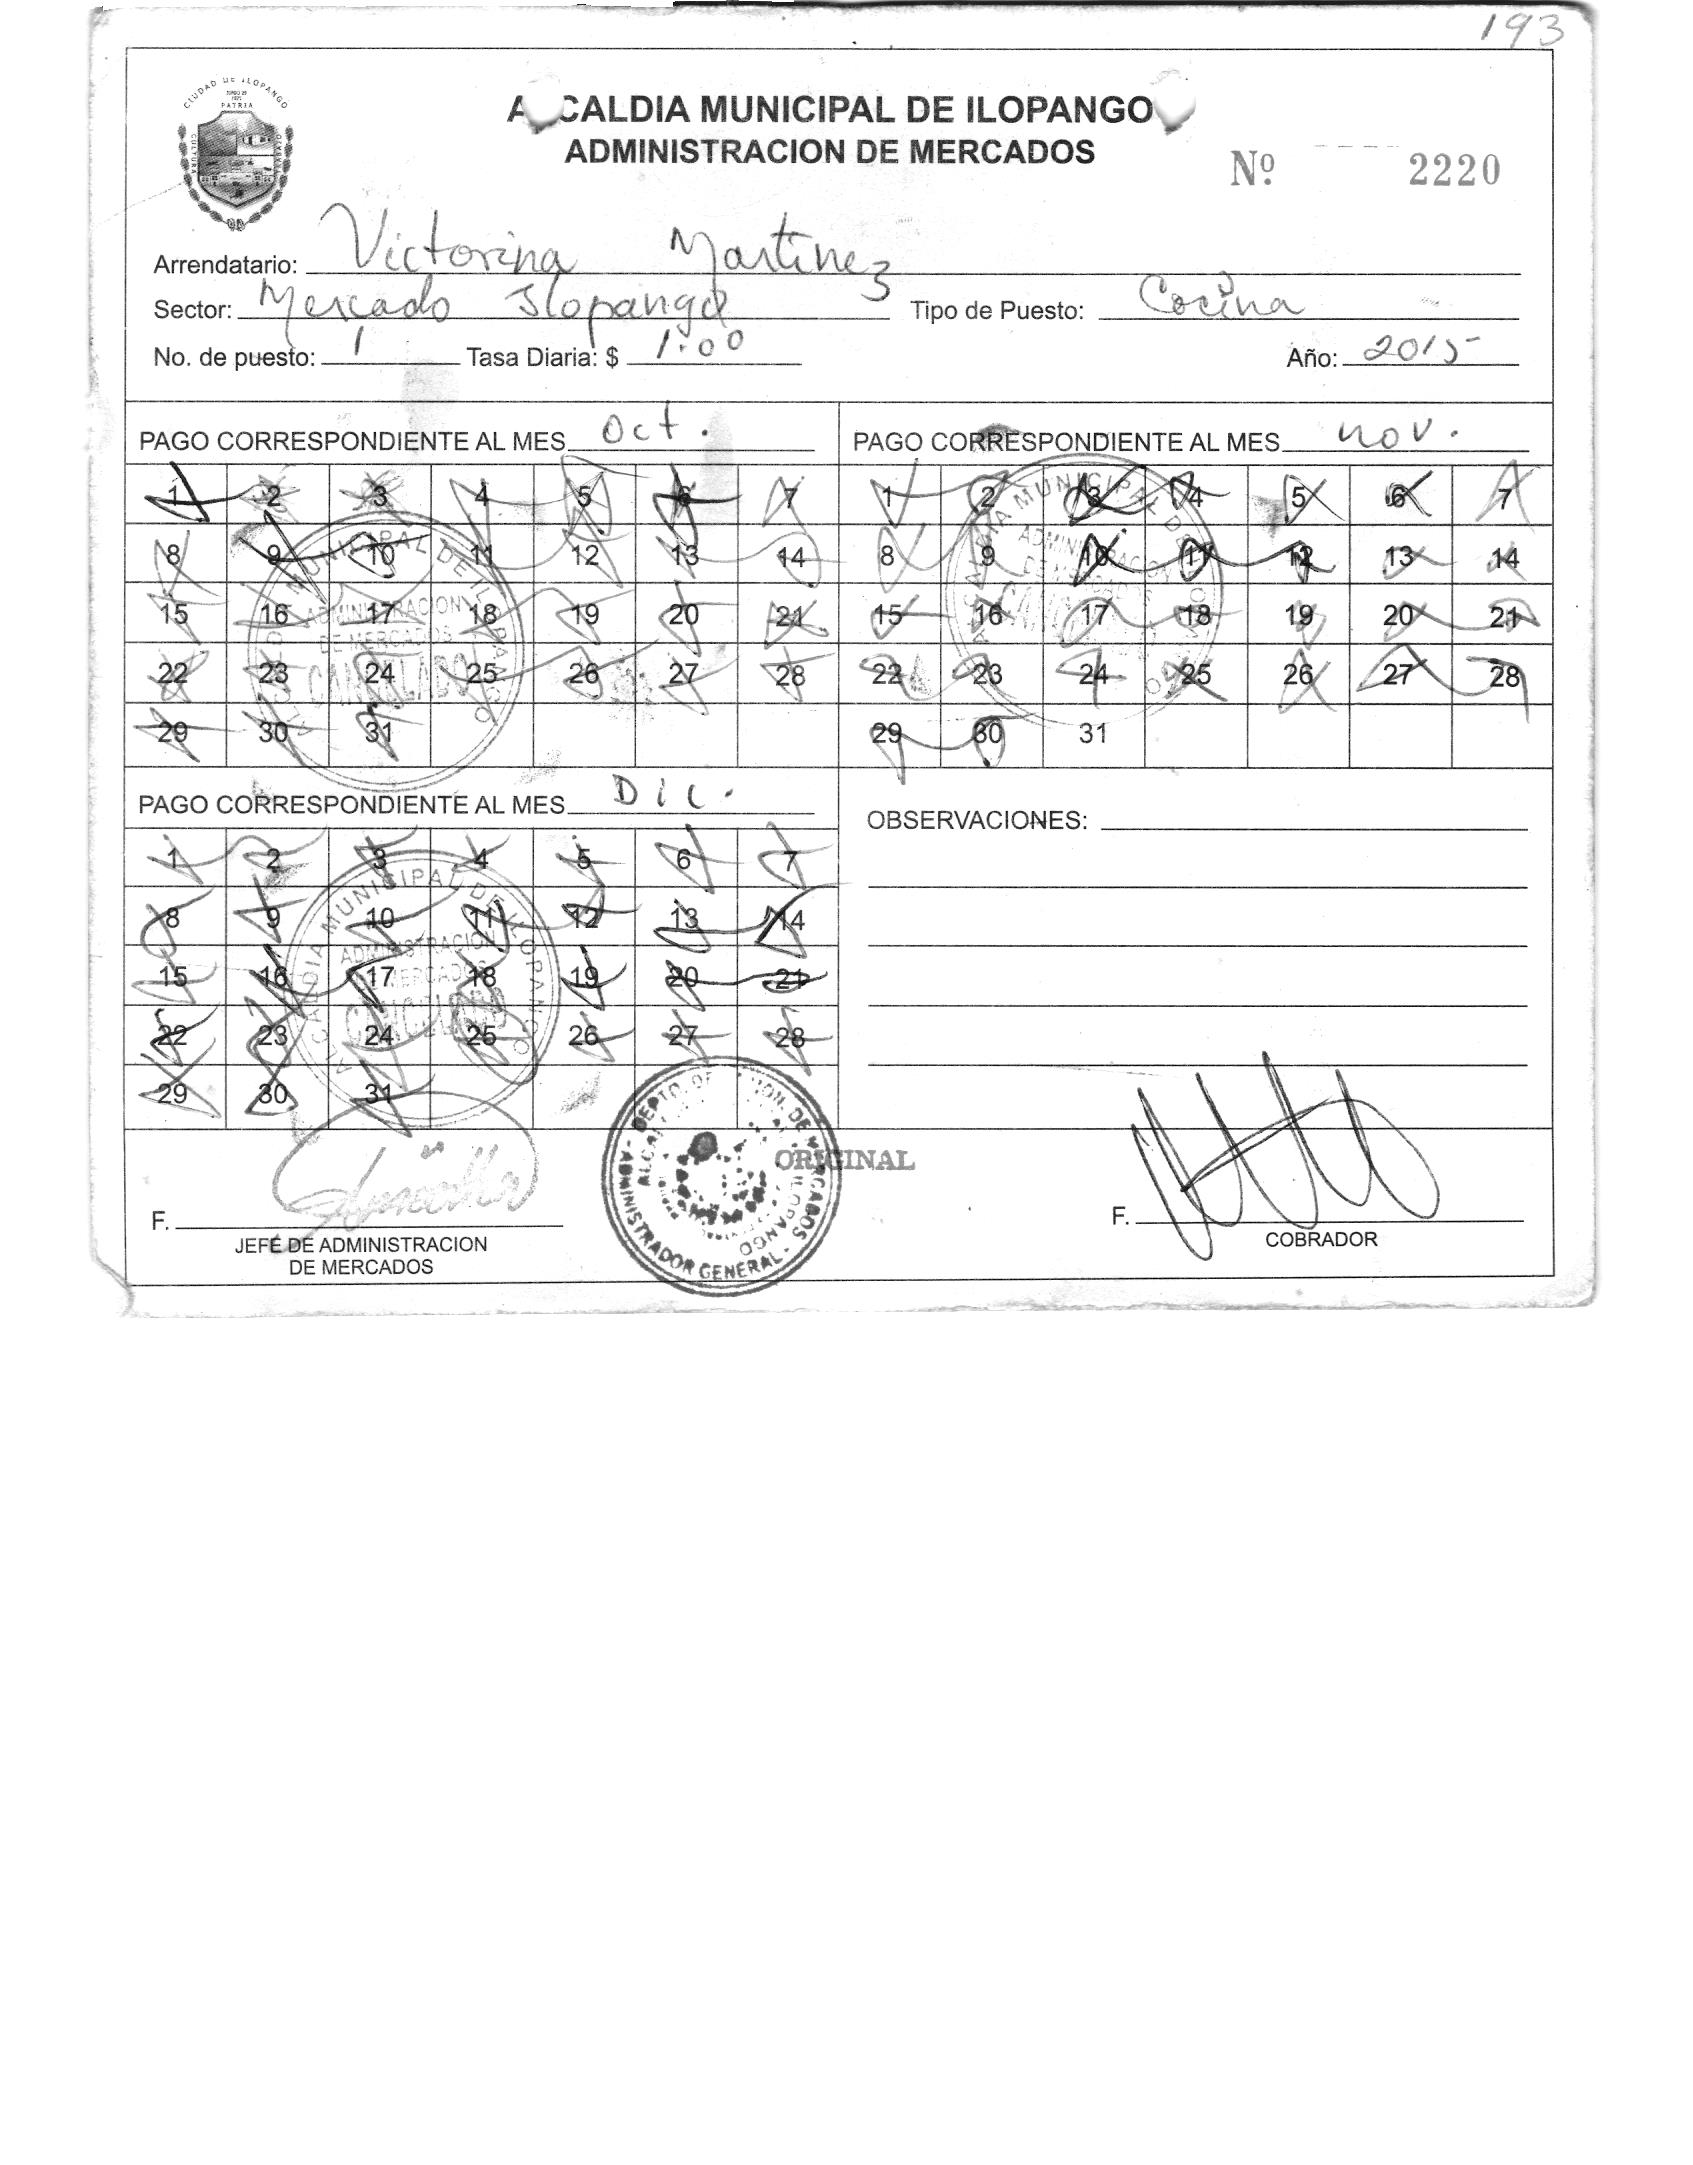 193
CIUDAD DE ILOPANGO
PATRIA
CULTURA
ALCALDIA MUNICIPAL DE ILOPANGO
ADMINISTRACION DE MERCADOS
Nº 2220
Arrendatario: Victorina Martinez
Sector: Mercado Ilopango Tipo de Puesto: Cocina
No. de puesto: 1 Tasa Diaria: $ 1.00 Año: 2015
PAGO CORRESPONDIENTE AL MES Oct.
1 2 3 4 5 6 7
8 9 10 11 12 13 14
15 16 17 18 19 20 21
22 23 24 25 26 27 28
29 30 31
ALCALDIA MUNICIPAL DE ILOPANGO
ADMINISTRACION
DE MERCADOS
CANCELADO
PAGO CORRESPONDIENTE AL MES nov.
1 2 3 4 5 6 7
8 9 10 11 12 13 14
15 16 17 18 19 20 21
22 23 24 25 26 27 28
29 30 31
ALCALDIA MUNICIPAL DE ILOPANGO
ADMINISTRACION
DE MERCADOS
CANCELADO
PAGO CORRESPONDIENTE AL MES Dic.
1 2 3 4 5 6 7
8 9 10 11 12 13 14
15 16 17 18 19 20 21
22 23 24 25 26 27 28
29 30 31
ALCALDIA MUNICIPAL DE ILOPANGO
ADMINISTRACION
DE MERCADOS
CANCELADO
OBSERVACIONES:
ORIGINAL
ADMINISTRADOR GENERAL
F.
JEFE DE ADMINISTRACION
DE MERCADOS
F.
COBRADOR